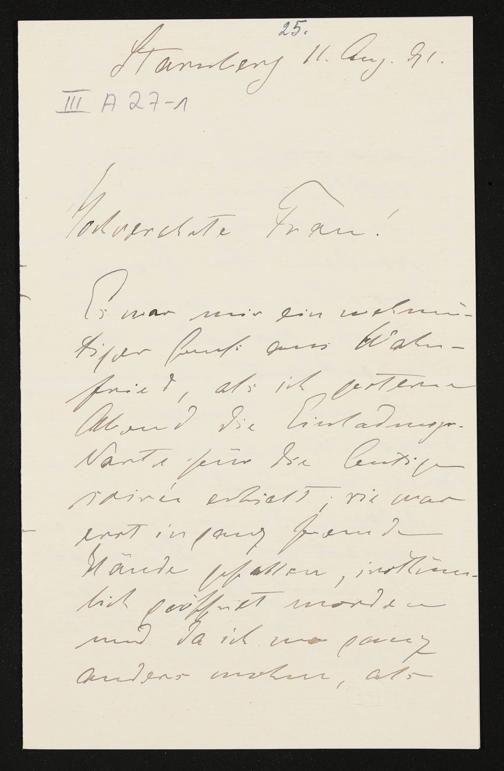 25.
Starnberg 11. Aug. 91.
III A 27-1
Hochverehrte Frau!
Es war mir ein wehmü-
tiger Gruß aus Wahn-
fried, als ich gestern
Abend die Einladungs-
Karte für die heutige
soirée erhielt; sie war
erst in ganz fremde
Hände gefallen, irrtüm-
lich geöffnet worden
und da ich wo ganz
anders wohn, als